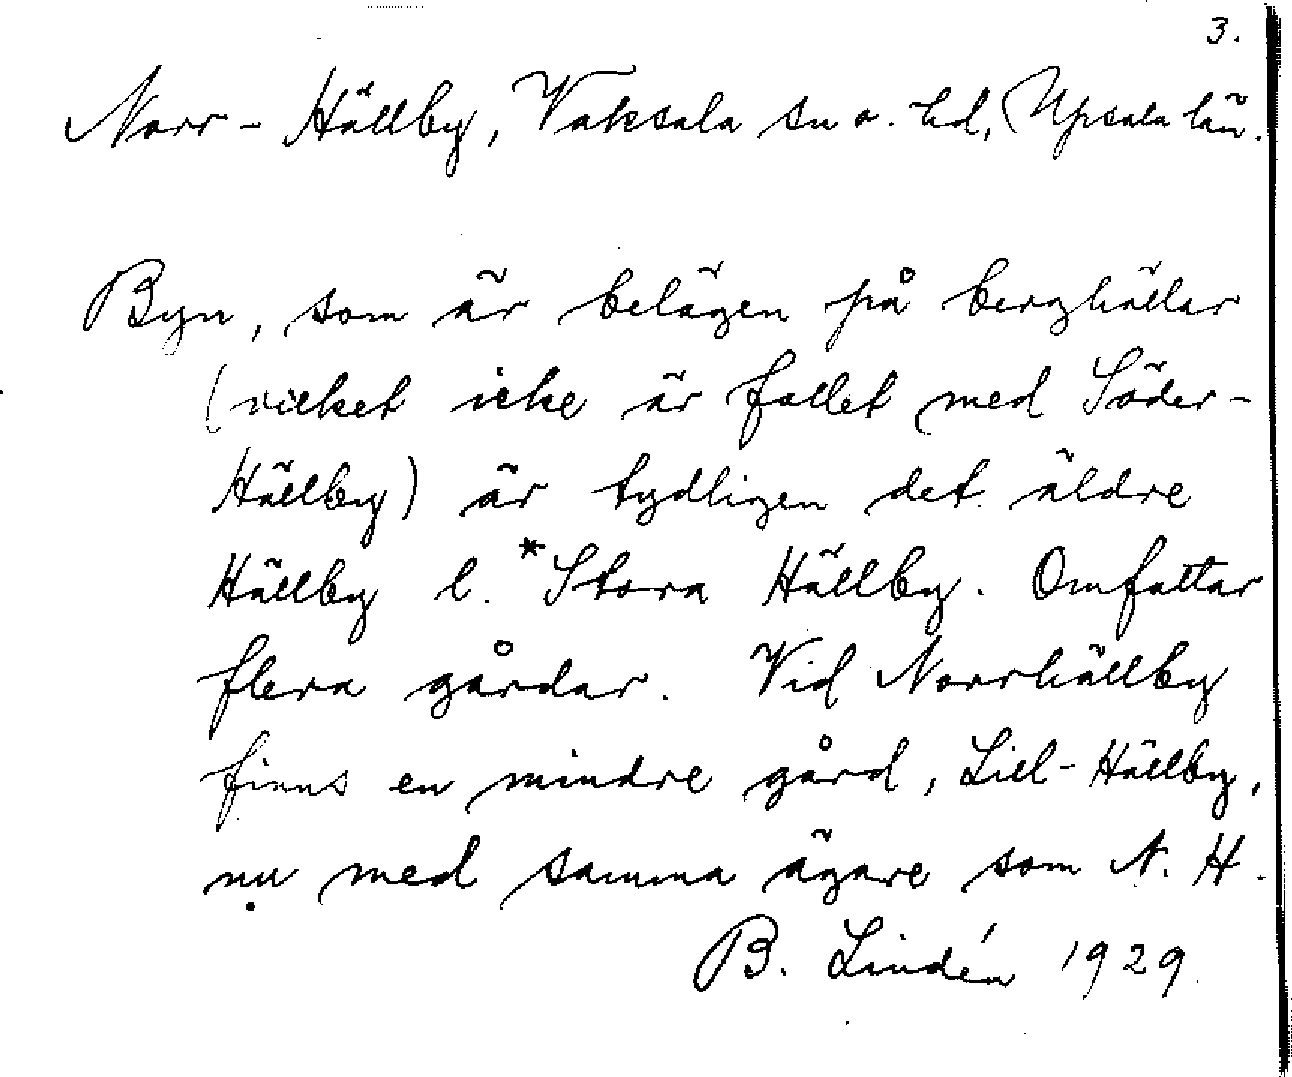 3.
Norr-Hällby, Vaksala sn o. hd, Upsala län.
Byn, som är belägen på berghällar
(vilket icke är fallet med Söder-
Hällby) är tydligen det äldre
Hällby l. *Stora Hällby. Omfattar
flera gårdar. Vid Norrhällby
finns en mindre gård, Lill-Hällby,
nu med samma ägare som N. H.
B. Lindén 1929